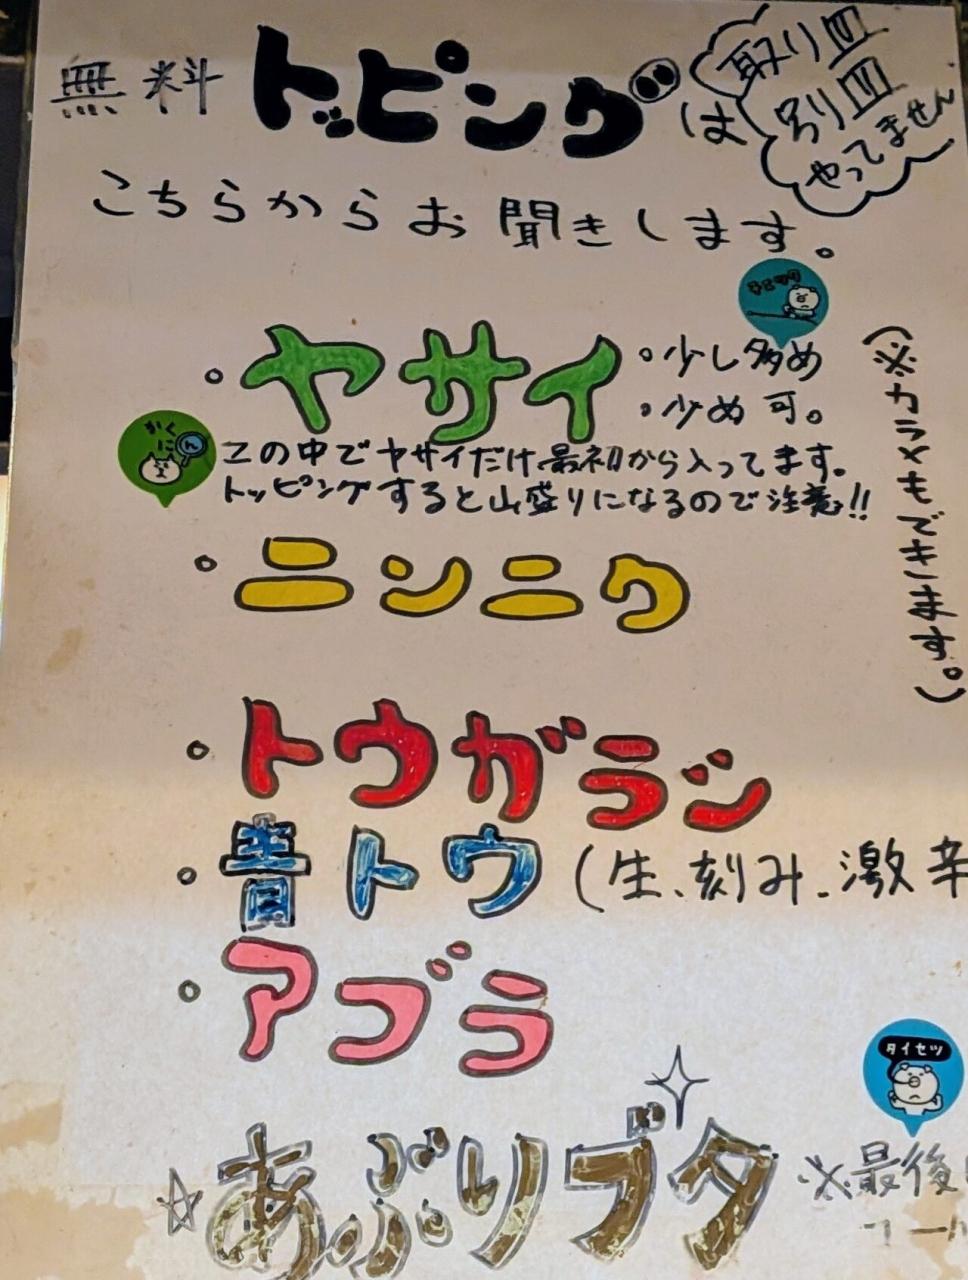 無料トッピングは
取り皿
別皿
やってません
こちらからお聞きします。
・ヤサイ
・少し多め
・少なめ可。
かくにん
この中でヤサイだけ最初から入ってます。
トッピングすると山盛りになるので注意!!
(※カラメもできます。)
・ニンニク
・トウガラシ
・青トウ(生、刻み、激辛
・アブラ
タイセツ
☆あぶりブタ
※最後
コール